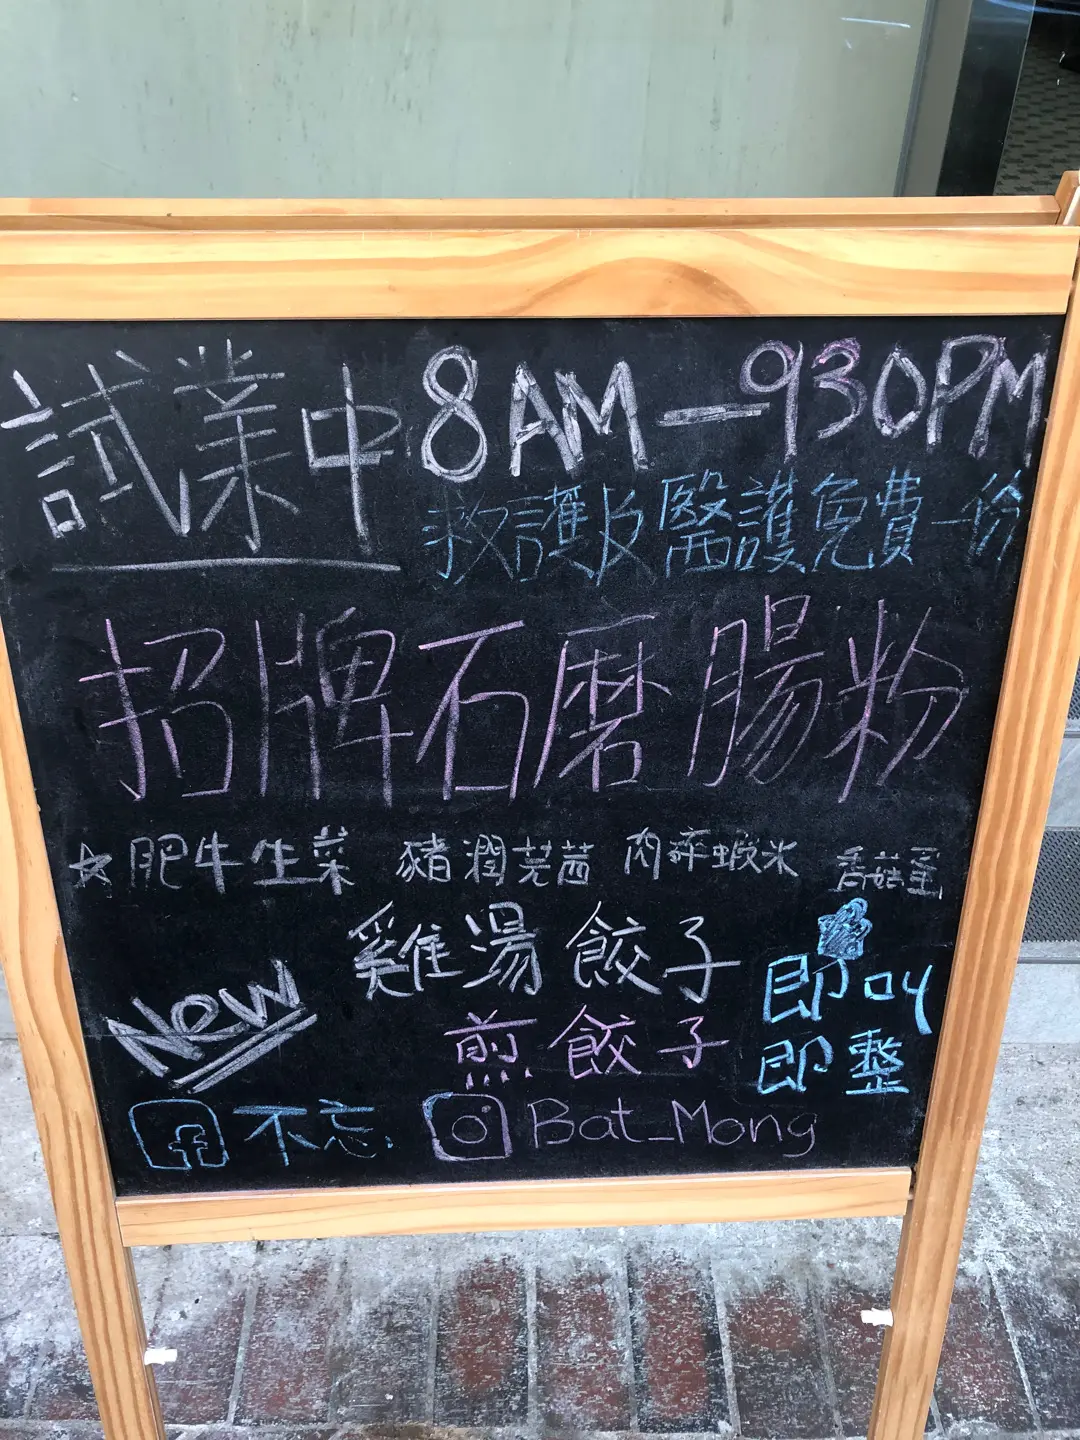 試業中 8AM—930PM
救護及醫護免費一份
招牌石磨腸粉
☆肥牛生菜 豬潤芫茜 肉碎蝦米 香菇蛋
雞湯餃子
New
煎餃子
即叫
即整
不忘.
Bat_Mong